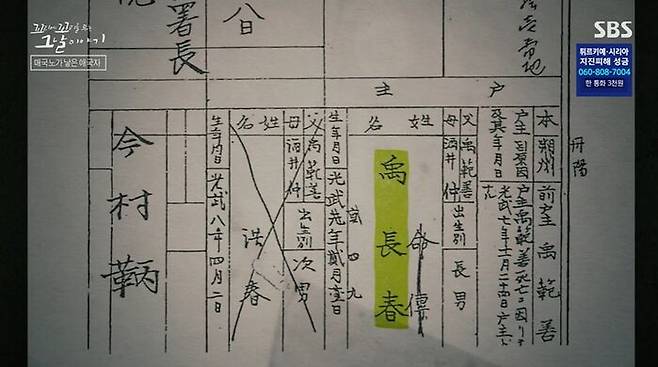 꼬리에 꼬리를 무는
그날 이야기
매국노가 낳은 애국자
SBS
튀르키예·시리아
지진피해 성금
060-808-7004
한 통화 3천원
戶主
丹陽
本
前戶主 禹範善
戶主
及其年月日
戶主禹範善死亡ニ因リ
光武七年十一月二十四日戶主
父 禹範善
母 酒井仲
出生別 長男
姓名
禹長春
命傳
貳四九
生年月日 光武 年貳月壹日
父 禹範善
母 酒井仲
出生別 次男
姓名
洪春
生年月日 光武八年四月二日
八日
署長
今村鞆